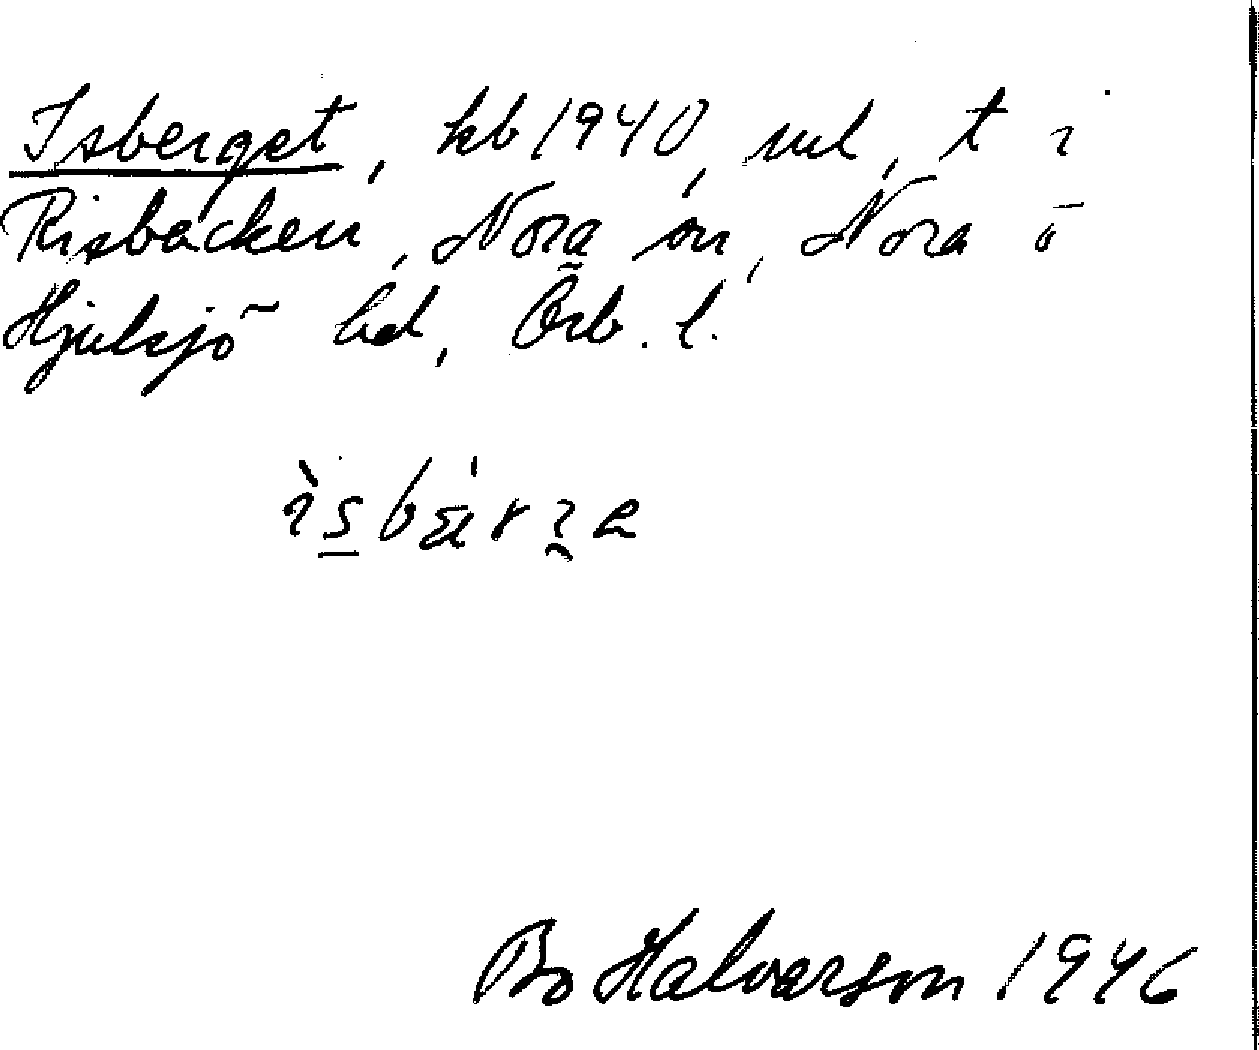 Isberget, kb 1940, ul, t i
Risbacken, Nora sn, Nora o
Hjulsjö bd, Örb. l.
Bo Halvarson 1946